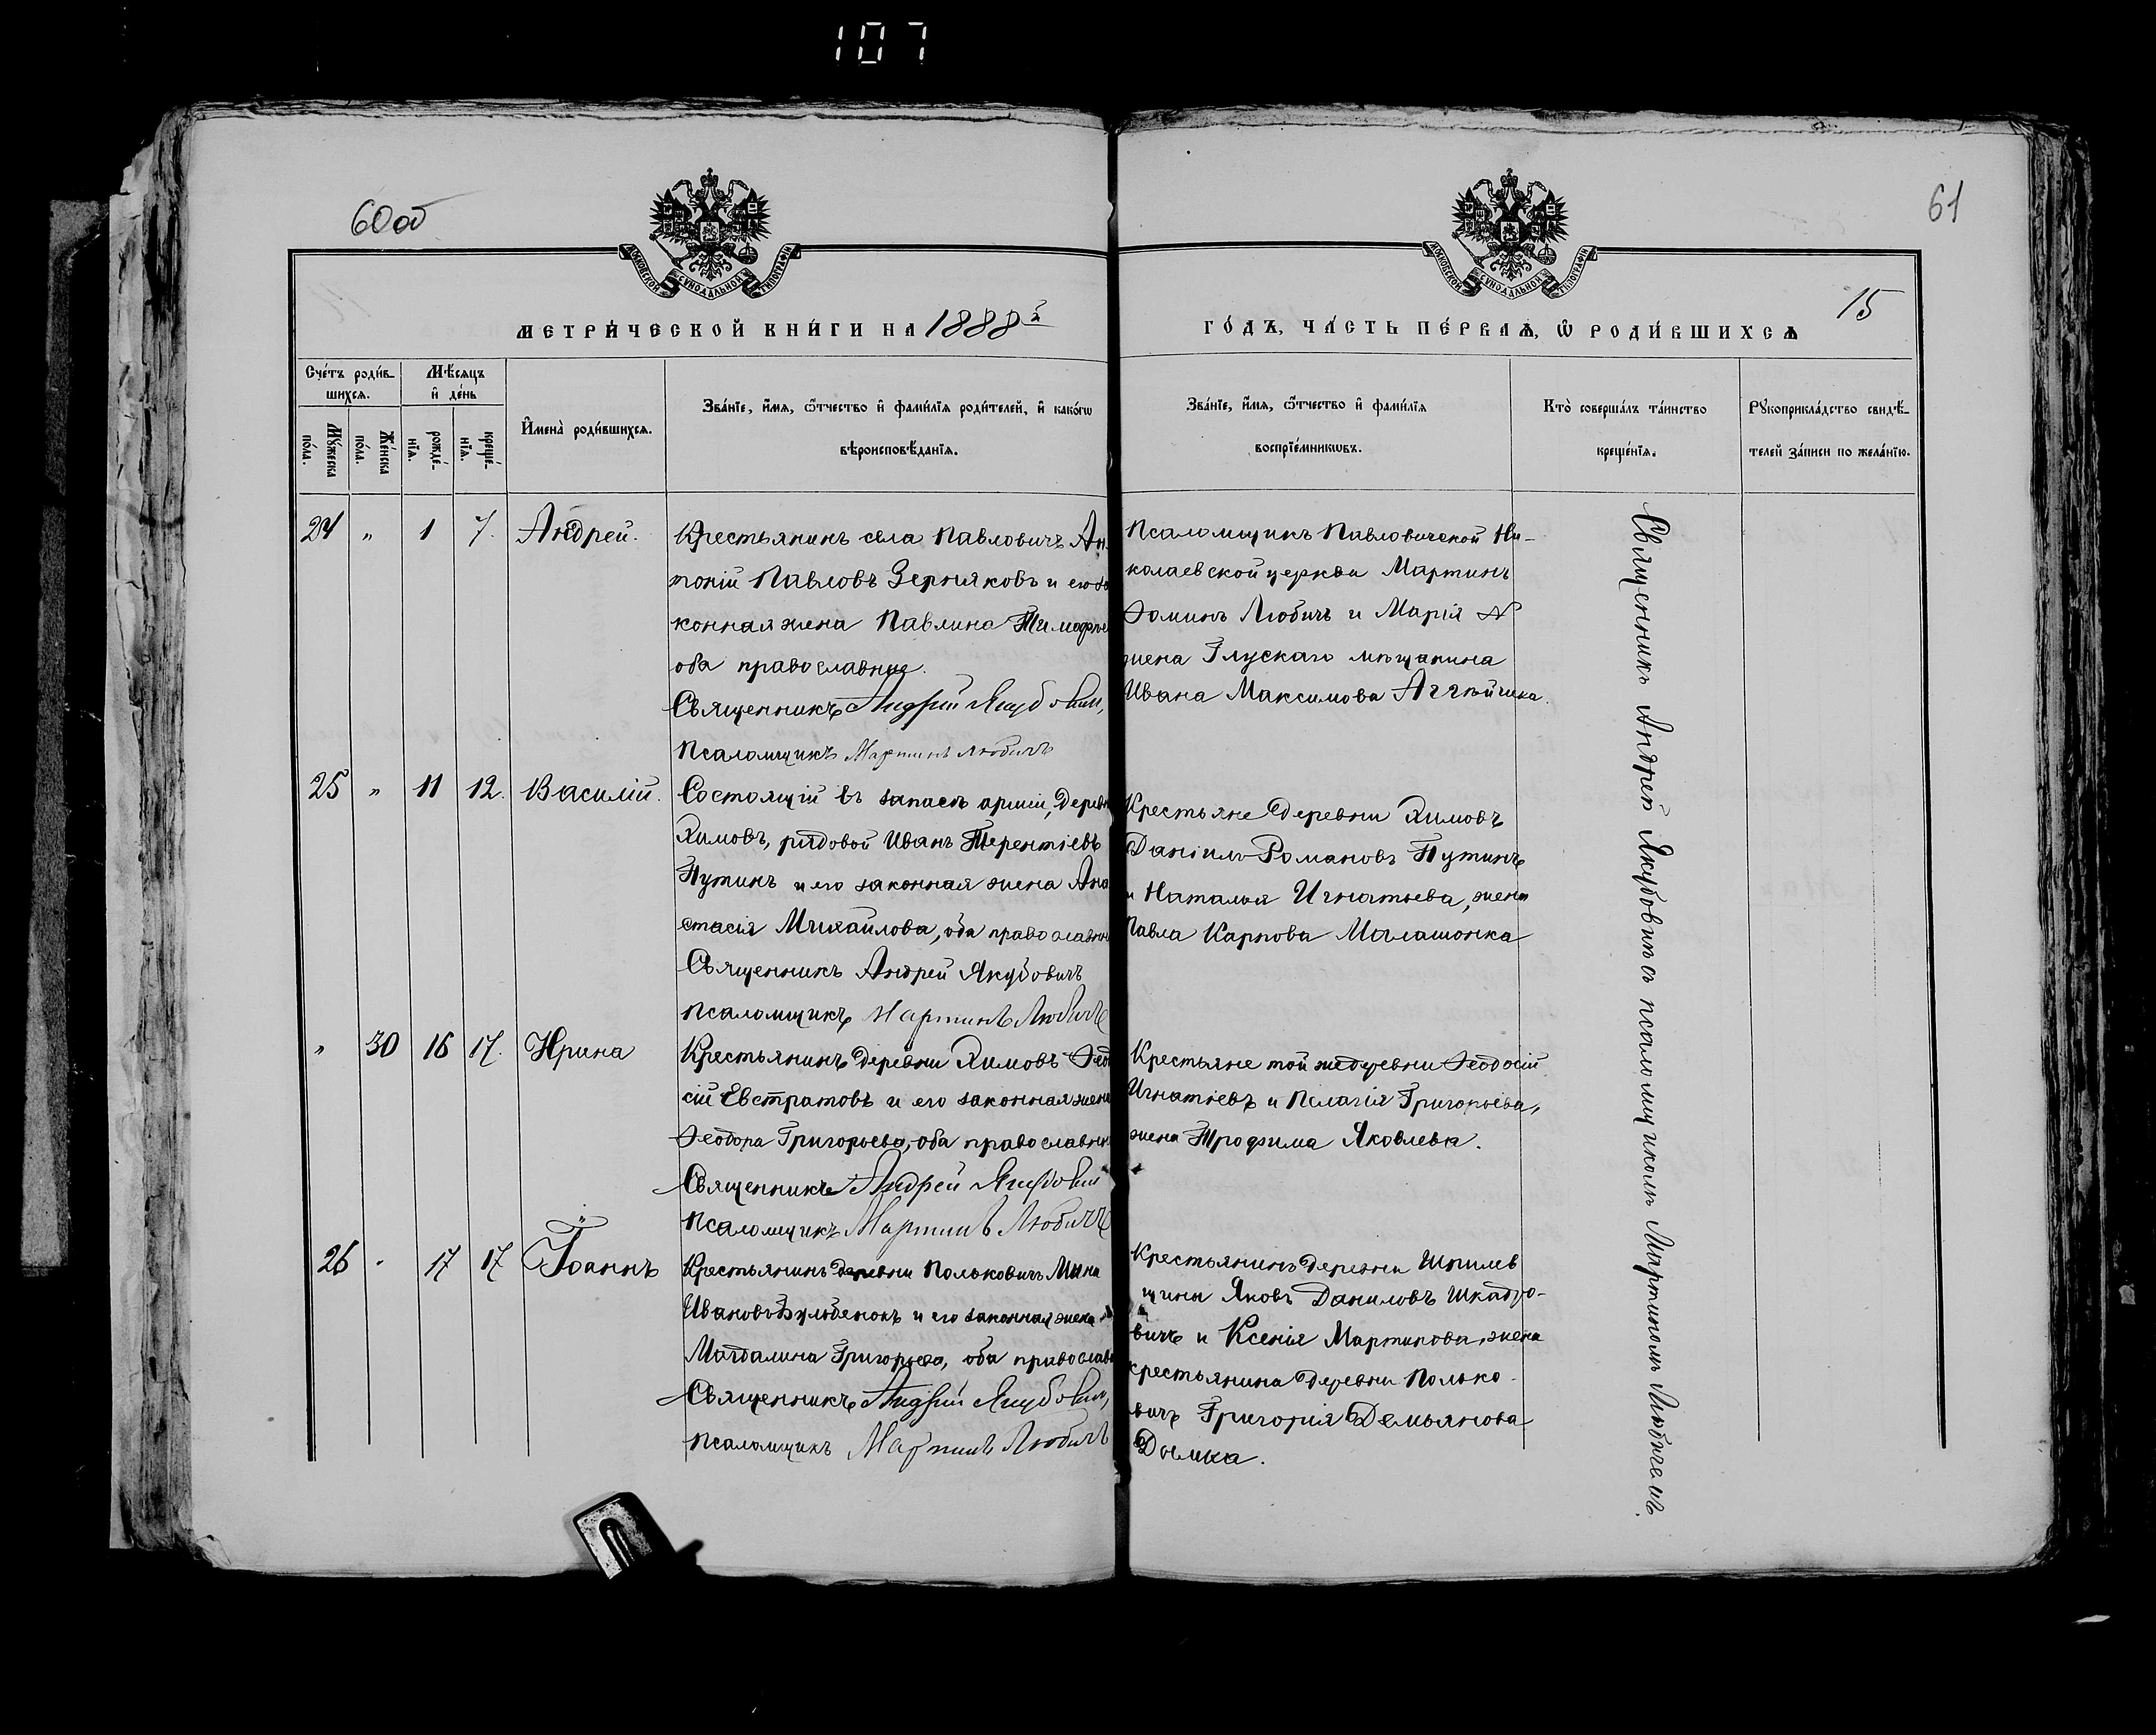 107
60об
61
15
МОСКОВСКОЙ СѴНОДАЛЬНОЙ ТИПОГРАФІИ
МОСКОВСКОЙ СѴНОДАЛЬНОЙ ТИПОГРАФІИ
МЕТРИ́ЧЕСКОЙ КНИ́ГИ НА 1888 й
ГО́ДЪ, ЧА́СТЬ ПЕ́РВАѦ, Ѡ҆ РОДИ́ВШИХСѦ
Сче́тъ роди́в-
шихсѧ.
Мѣ́сѧцъ
и҆ де́нь
Мꙋ́жеска
по́ла.
Же́нска
по́ла.
рожде́-
нїѧ.
креще́-
нїѧ.
И҆мена̀ роди́вшихсѧ.
Зва́нїе, и҆́мѧ, ѻ҆́тчество и҆ фами́лїѧ роди́телей, и҆ како́гѡ
вѣроисповѣ́данїѧ.
Зва́нїе, и҆́мѧ, ѻ҆́тчество и҆ фами́лїѧ
воспрїе́мникѡвъ.
Кто̀ соверша́лъ та́инство
креще́нїѧ.
Рꙋкоприкла́дство свидѣ́-
телей за́писи по жела́нїю.
24 " 1 7. Андрей.
Крестьянинъ села Павловичъ Ан-
тоній Павловъ Зерняковъ и его за
конная жена Павлина Тимофѣе
оба православные.
Священникъ Андрей Якубович,
Псаломщикъ Мартинъ Любичъ
Псаломщикъ Павловичской Ни-
колаевской церкви Мартинъ
Ѳоминъ Любичъ и Марія N
жена Глускаго мѣщанина
Ивана Максимова
25 " 11 12. Василій.
Состоящій въ запасѣ арміи, дерев
Химовъ, рядовой Иванъ Терентіевъ
Путинъ и его законная жена Ана
стасія Михайлова, оба православн
Священникъ Андрей Якубовичъ
Псаломщикъ Мартинъ Любичъ
Крестьяне деревни Химовъ
Даніилъ Романовъ Путинъ
и Наталья Игнатьева, жена
Павла Карпова Малашонка
" 30 16 17. Ирина
Крестьянинъ деревни Химовъ Ѳеодо
сій Евстратовъ и его законная жена
Ѳеодора Григорьева, оба православн
Священникъ Андрей Якубович
Псаломщикъ Мартинъ Любичъ
Крестьяне той же деревни Ѳеодосій
Игнатіевъ и Пелагія Григорьева,
жена Трофима Яковлева.
26 " 17 17 Іоаннъ
Крестьянинъ деревни Польковичъ Мина
Ивановъ Бульбенокъ и его законная жена
Магдалина Григорьева, оба православн
Священникъ Андрей Якубович,
Псаломщикъ Мартинъ Любичъ
Крестьянинъ деревни Шпилев
щины Яковъ Даниловъ Шкадро-
вичъ и Ксенія Мартинова, жена
крестьянина деревни Полько-
вичъ Григорія Демьянова
Домка.
Священникъ Андрей Якубовичъ съ псаломщикомъ Мартиномъ Любичемъ.